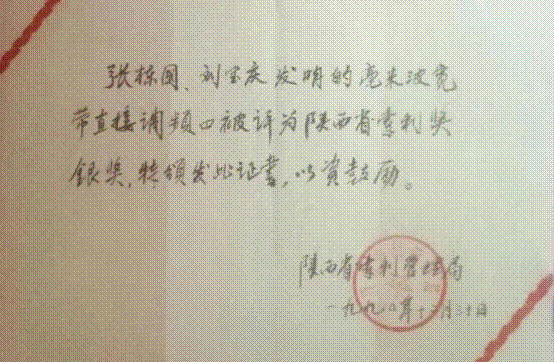 张栋国、刘宝庆发明的毫米波宽
带直接调频口被评为陕西省专利奖
银奖,特颁发此证书,以资鼓励。
陕西省专利管理局
一九九〇年十月三十日